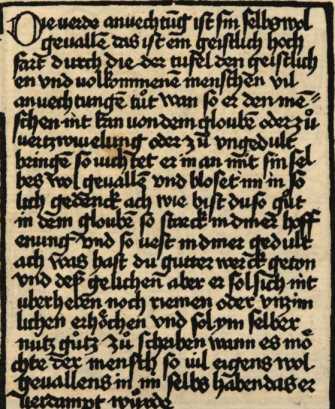 Die vierde anvechtūg ist sin selbs wol
gevallē das ist ein geistlich hoch
fart durch die der tüfel den geistlich
en vnd volkommenē menschen vil
anvechtungē tůt wan so er den mē
schen nit kan von dem gloubē oder zů
vertzwivelung oder zů vngedult
bringē so vichtet er in an mit sin sel
bes wol gevallē vnd bloset im in so
lich gedenck ach wie bist du so gůt
in dem gloubē so starck in diner hoff
enung vnd so vest in diner gedult
ach was hast du gutter werck geton
vnd deß gelichen aber er sol sich nit
vberheben noch riemen oder vnzim
lichen erhöchen vnd sol ym selber
nütz gůtz zů schriben wann es mö
chte der mensch so vil eigens wol
gevallens in im selbs haben das er
verdampt würde